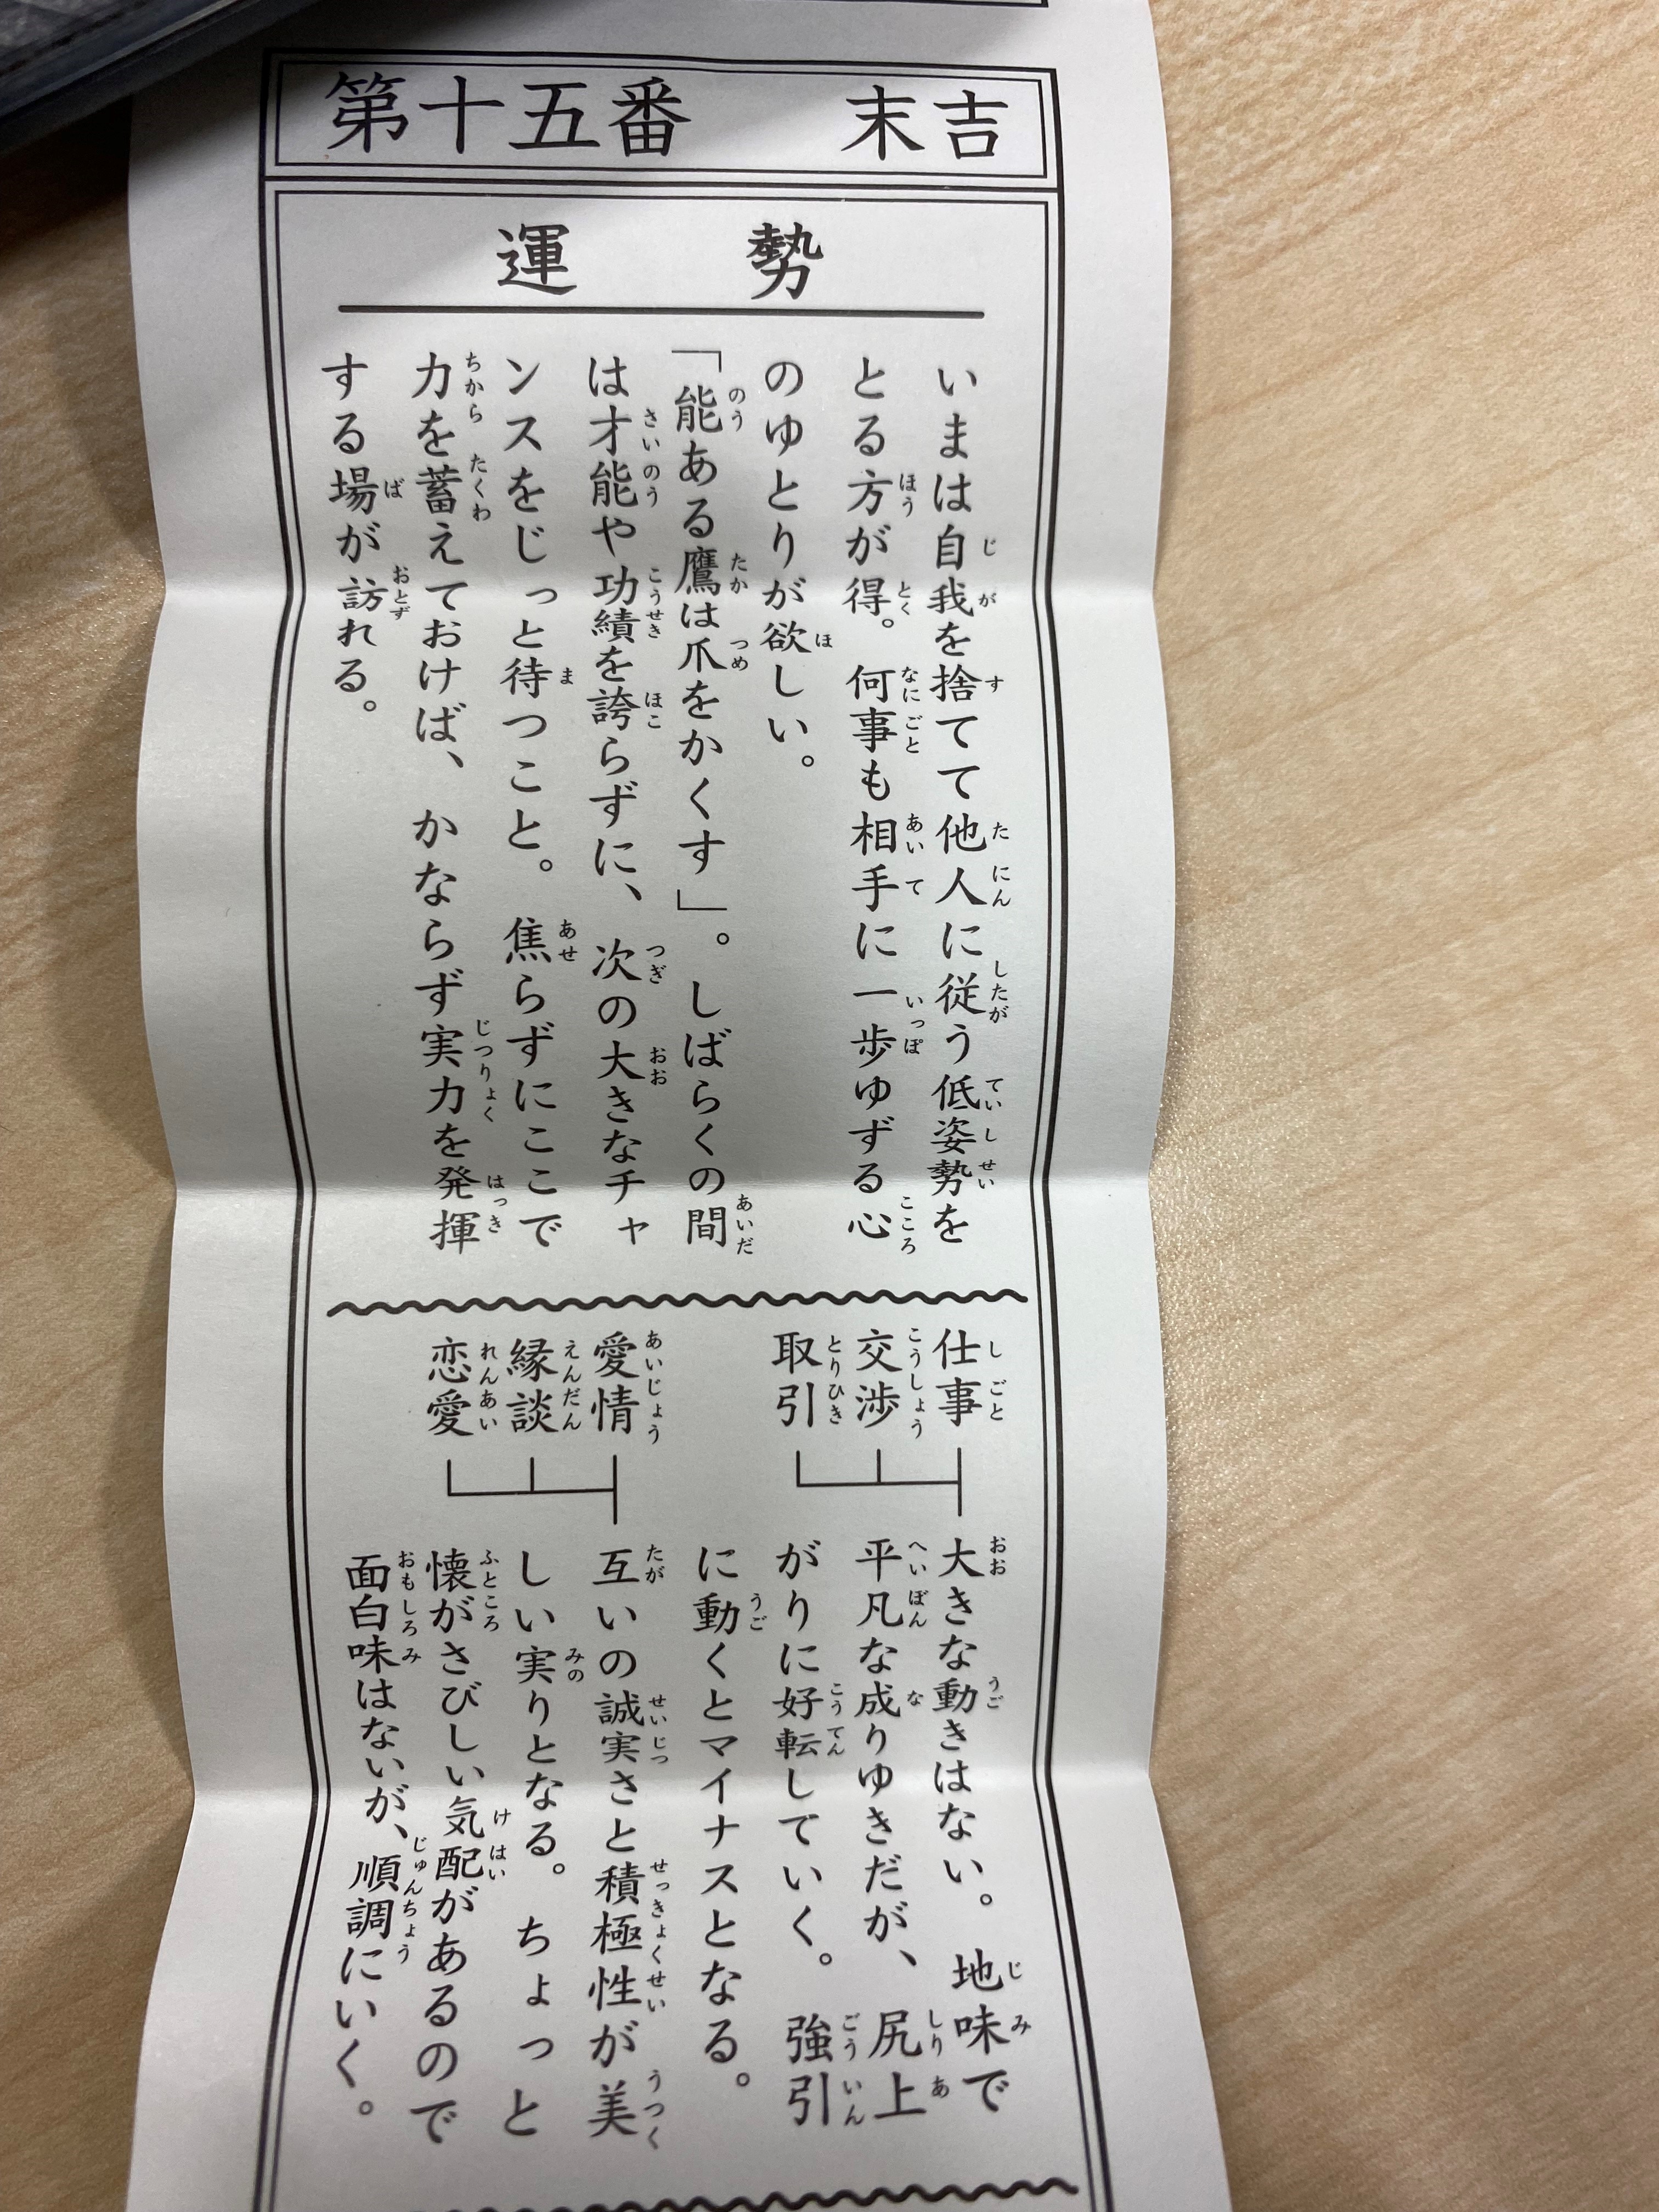 第十五番　末吉
運勢
いまは自我を捨てて他人に従う低姿勢を
とる方が得。何事も相手に一歩ゆずる心
のゆとりが欲しい。
「能ある鷹は爪をかくす」。しばらくの間
は才能や功績を誇らずに、次の大きなチャ
ンスをじっと待つこと。焦らずにここで
力を蓄えておけば、かならず実力を発揮
する場が訪れる。
仕事
交渉
取引
大きな動きはない。地味で
平凡な成りゆきだが、尻上
がりに好転していく。強引
に動くとマイナスとなる。
愛情
縁談
恋愛
互いの誠実さと積極性が美
しい実りとなる。ちょっと
懐がさびしい気配があるので
面白味はないが、順調にいく。